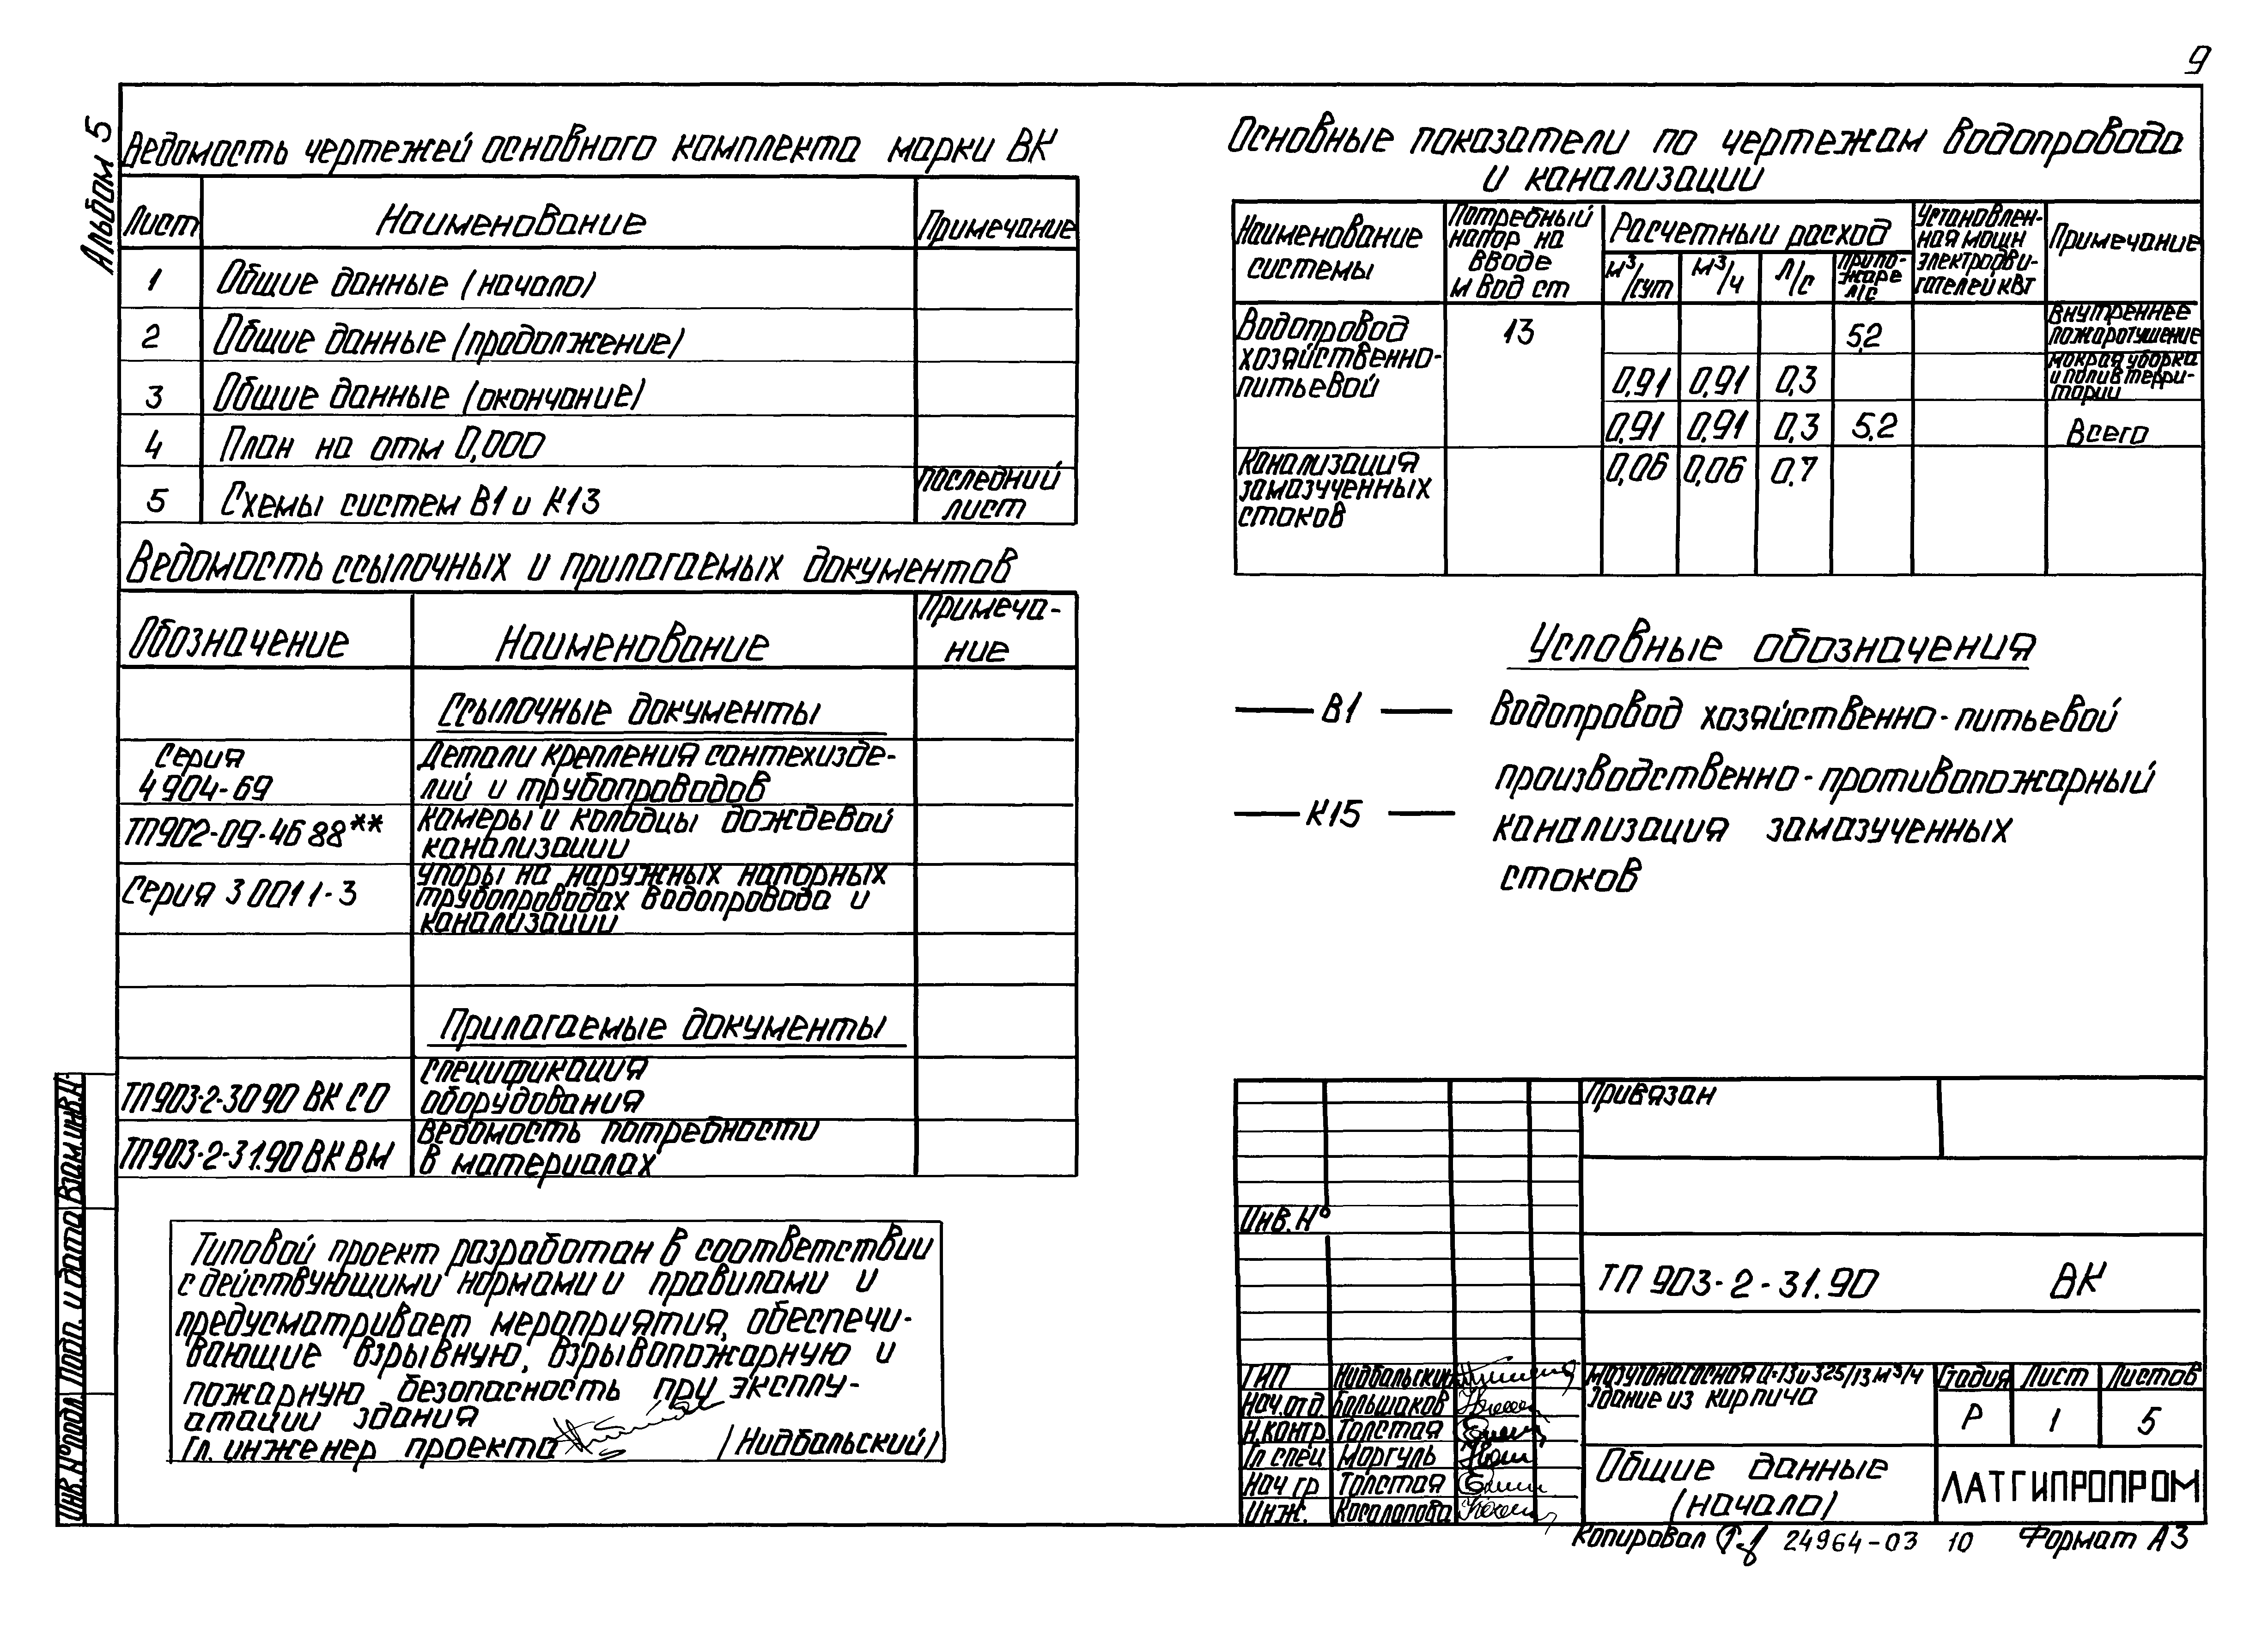 9
Альбом 5
Ведомость чертежей основного комплекта марки ВК
Лист Наименование Примечание
1 Общие данные (начало)
2 Общие данные (продолжение)
3 Общие данные (окончание)
4 План на отм 0,000
5 Схемы систем В1 и К13 последний
лист
Ведомость ссылочных и прилагаемых документов
Обозначение Наименование Примеча-
ние
Ссылочные документы
Серия
4 904-69
Детали крепления сантехизде-
лий и трубопроводов
ТП902-09-46 88**
Камеры и колодцы дождевой
канализации
Серия 3 001 1-3
Упоры на наружных напорных
трубопроводах водопровода и
канализации
Прилагаемые документы
ТП903-2-30 90 ВК СО
Спецификация
оборудования
ТП903-2-31.90 ВК ВМ
Ведомость потребности
в материалах
Типовой проект разработан в соответствии
с действующими нормами и правилами и
предусматривает мероприятия, обеспечи-
вающие взрывную, взрывопожарную и
пожарную безопасность при эксплу-
атации здания
Гл. инженер проекта (Нидбальский)
Основные показатели по чертежам водопровода
и канализации
Наименование
системы
Потребный
напор на
вводе
м вод ст
Расчетный расход
м³/сут м³/ч л/с При по-
жаре
л/с
Установлен-
ная мощн
электродви-
гателей кВт
Примечание
Водопровод
хозяйственно-
питьевой
13
5,2 Внутреннее
пожаротушение
0,91 0,91 0,3 мокрая уборка
и полив терри-
тории
0,91 0,91 0,3 5,2 Всего
Канализация
замазученных
стоков
0,06 0,06 0,7
Условные обозначения
В1 Водопровод хозяйственно-питьевой
производственно-противопожарный
К15 канализация замазученных
стоков
Привязан
Инв. №
ТП 903-2-31.90 ВК
ГИП Нидбальский
Нач.отд Большаков
Н.контр Толстая
Гл спец Моргуль
Нач гр Толстая
Инж. Косолапова
Мазутонасосная Q=13 и 3,25/13 м³/ч
Здание из кирпича
Стадия Лист Листов
Р 1 5
Общие данные
(начало)
ЛАТГИПРОПРОМ
Копировал 24964-03 10 Формат А3
Инв. № подл. Подп. и дата Взам.инв.№